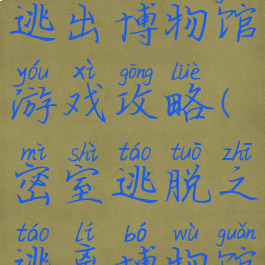 逃出博物馆
yóu xì gōng lüè
游戏攻略(
mì shì táo tuō zhī
密室逃脱之
táo lí bó wù guǎn
逃离博物馆